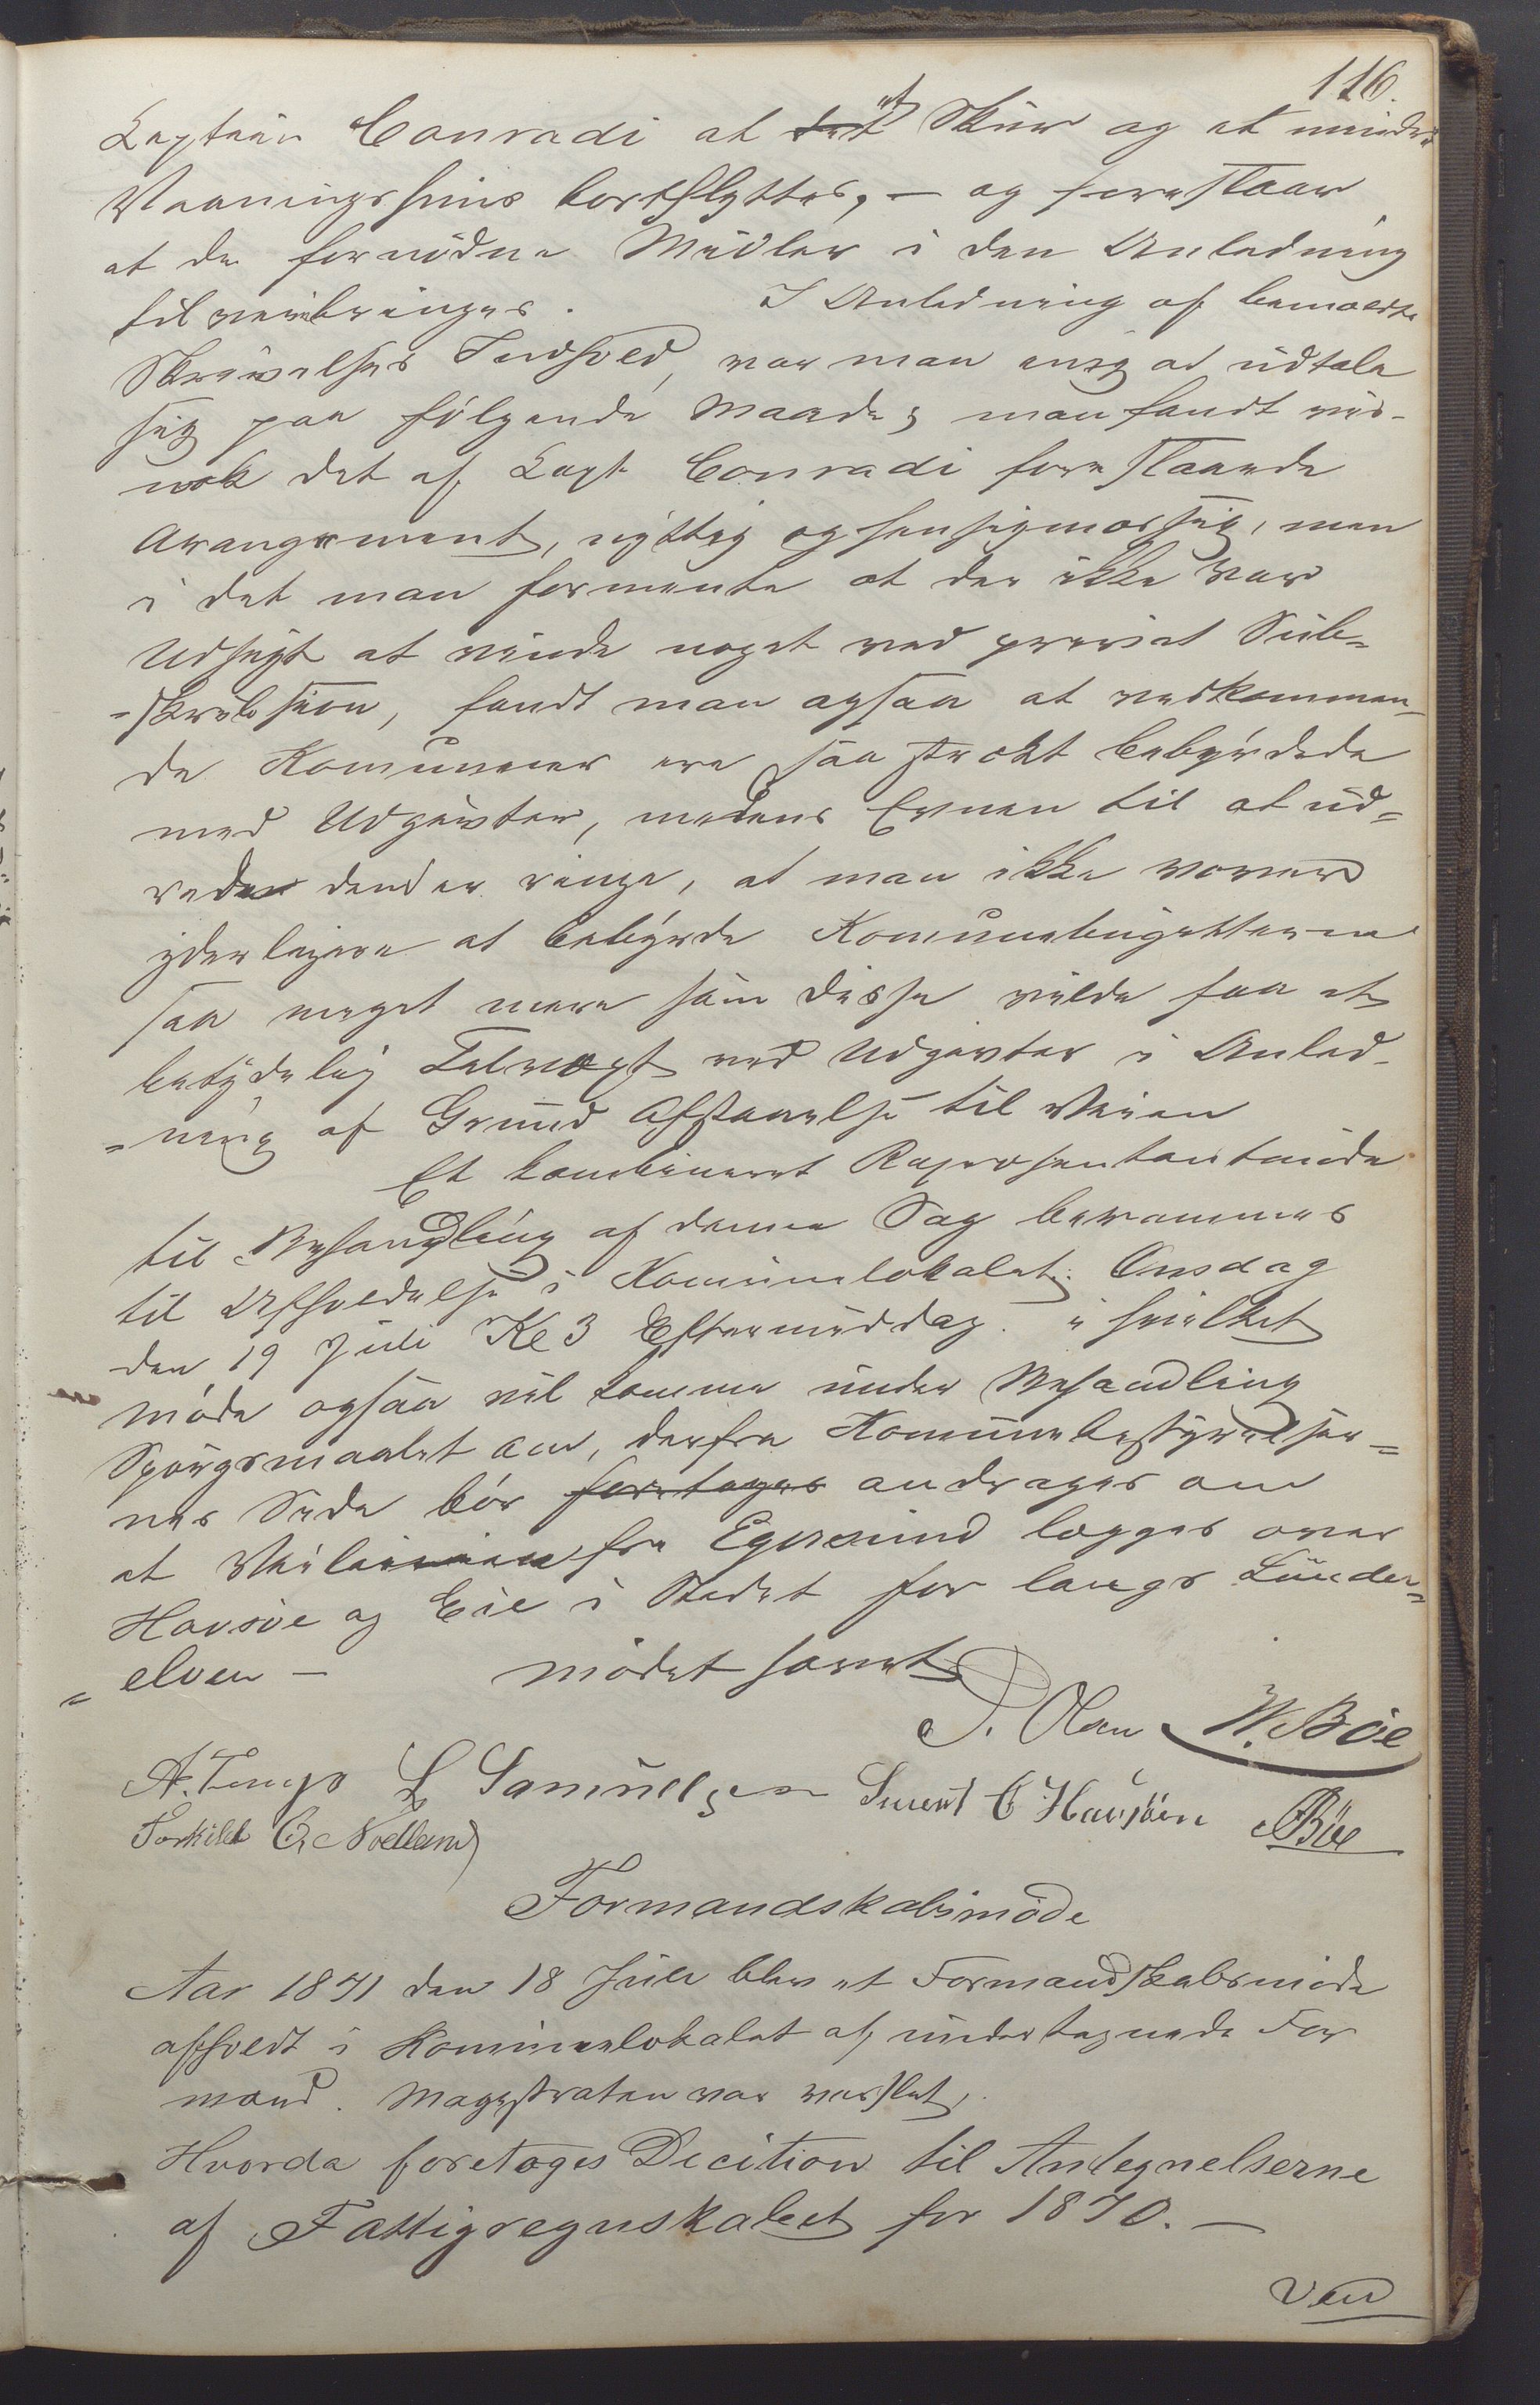 116.
Captain Conradi at et Skuur og et mindre
Vaaningshuus bortflyttes, – og foreslaar
at de fornödne Midler i den Anledning
tilveiebringes. I Anledning af bemældte
Skrivelses Indhold, var man enig at udtale
sig paa fölgende Maade; man fandt vis-
nok det af Capt Conradi foreslaaede
Arangement, nyttig og hensigmæssig, men
i det man formente at der ikke var
Udsigt at vinde noget ved privat Sub-
-skribsion, fandt man ogsaa at vedkommen-
de Komunner ere saa stærkt bebyrdede
med Udgivter, medens Evnen til at ud-
rede dem er ringe, at man ikke vover
yderligere at bebyrde Komunebugetterne
saa meget mere som disse vilde faa et
betydelig Tilvægt ved Udgivter i Anled-
-ning af Grund Afstaaelse til Veien
Et kombineret Repræsentantmöde
til Behandling af denne Sag berammes
til Afholdelse i Komunelokalet Onsdag
den 19 Juli Kl 3 Eftermiddag. i hvilket
möde ogsaa vil komme under Behandling
Spörgsmaalet om, derfra Komunebestyrelser-
nes Side bör foretages andrages om
at Veilinien fra Egersund lægges over
Havsöe og Eie i Stedet for langs Lunde-
- elven – mödet hævet
P. Olsen W. Böe
A. Tengs L Samuelsen Sivert O Havsöen Böe
Torkild O. Nodland
Formandskabsmöde
Aar 1871 den 18 Juli blev et Formandskabsmöde
afholdt i Komunelokalet af undertegnede For
mænd. Magistraten var varslet.
Hvorda foretoges Decition til Antegnelserne
af Fattigregnskabet for 1870. –
Ven